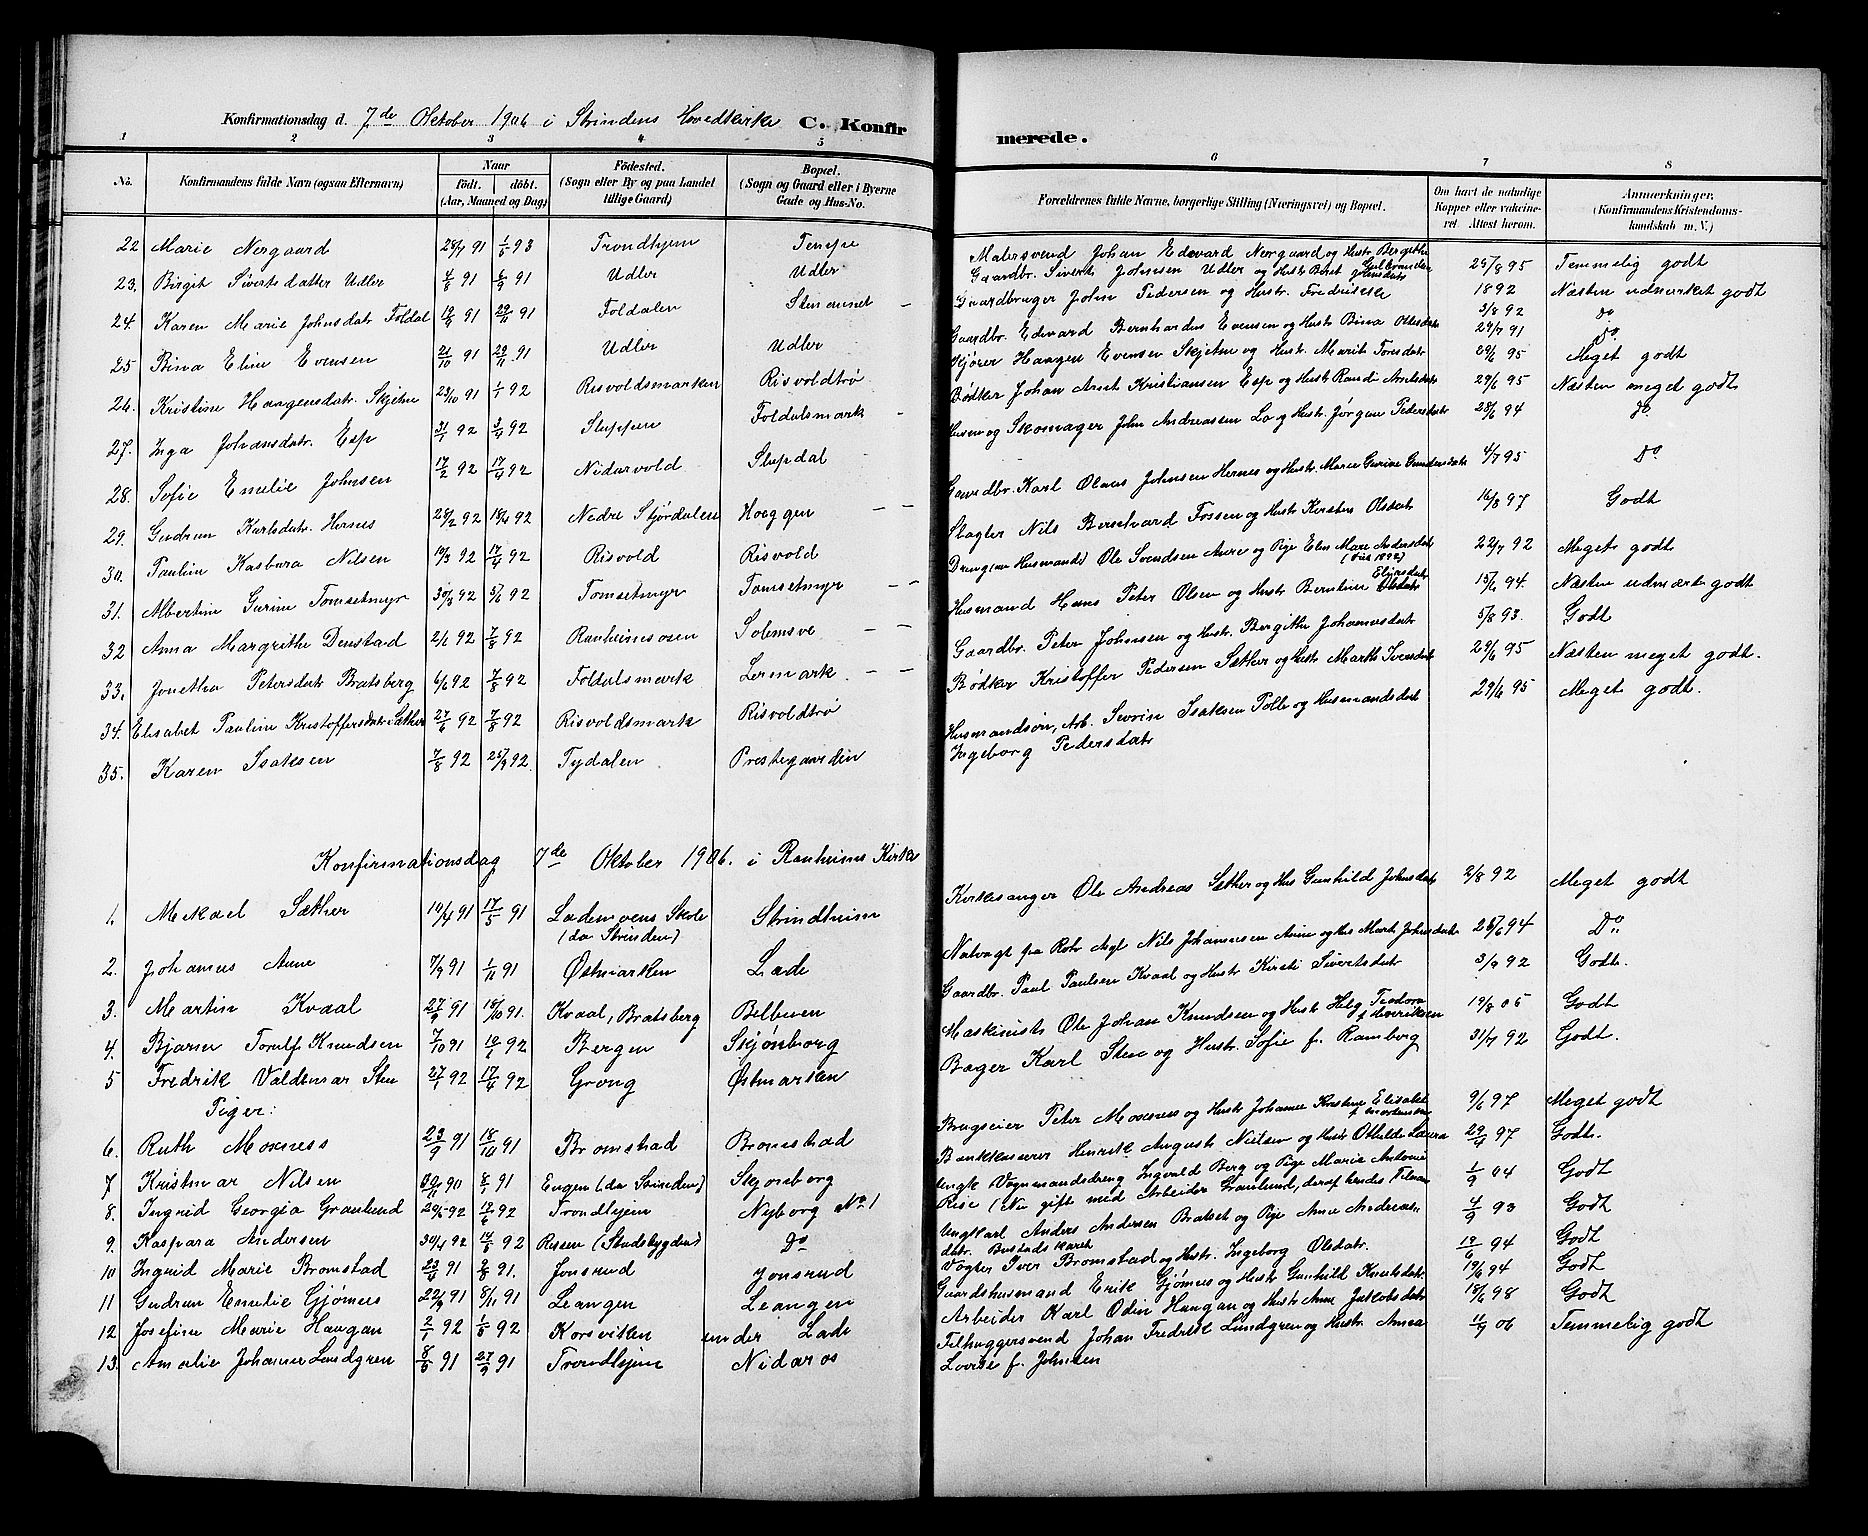 Konfirmationsdag d. 7de Oktober 1906 i Strindens Hovedkirke C. Konfir
merede.
1 2 3 4 5
6 7 8
No. Konfirmandens fulde Navn (ogsaa Efternavn) Naar födt. döbt. (Aar, Maaned og Dag) Födested. (Sogn eller By og paa Landet tillige Gaard) Bopæl. (Sogn og Gaard eller i Byerne Gade og Hus-No.
Forældrenes fulde Navne, borgerlige Stilling (Næringsvei) og Bopæl. Om havt de naturlige Kopper eller vaccineret. Attest herom. Anmærkninger. (Konfirmandens Kristendomskundskab m. V.)
22 Marie Nergaard 28/7 91 1/5 93 Trondhjem Tempe
Malersvend Johan Edevard Nergaard og Hustr. Bergithe Gulbrandsen 25/8 95 Temmelig godt
23. Birgit Sivertsdatter Udler 4/8 91 6/9 91 Udler Udler
Gaardbr. Sivert Johnsen Udler og Hustr. Beret Hansdatr 1892 Næsten udmerket godt
24. Karen Marie Johnsdatr Foldal 12/9 91 22/11 91 Foldalen Stenaunet -
Gaardbruger John Pedersen og Hustr. Fredrikke 3/8 92 do
25 Bina Eline Evensen 21/10 91 22/11 91 Udler Udler
Gaardbr. Edevard Bernhardus Evensen og Hustr Bina Olsdatr 24/7 91 Do
26. Kristine Haagensdatr. Skjetne 23/10 91 1/1 92 Risvoldsmarken Risvoldtrø
Kjører Haagen Evensen Skjetne og Hustr. Marit Tomsdatr 29/6 95 Meget godt
27. Inga Johansdatr. Esp 31/1 92 3/4 92 Sluppen Foldalsmark -
Bødker Johan Arnt Kristiansen Esp og Hustr Randi Arntsdatr 29/6 95 Næsten meget godt
28. Sofie Emelie Johnsen 17/2 92 17/4 92 Nidarvold Slupdal
Husm og Skomager John Andreassen Lo og Hustr. Jørgine Pedersdatr 28/6 94 do
29. Gudrun Karlsdatr. Hernes 28/2 92 18/4 92 Nedre Stjørdalen Hoeggen - -
Gaardbr. Karl Olaus Johnsen Hernes og Hustr. Marie Gurine Gundersdatr 4/7 95 Do
30. Pauline Kasbara Nilsen 19/3 92 17/4 92 Risvold Risvold
Slagter Nils Bernhard Fossen og Hustr Kirsten Olsdatr 16/8 97 Godt
31. Albertine Gurine Tomsetmyr 30/3 92 5/6 92 Tomsetmyr Tomsetmyr - -
Dreng (nu Husmand) Ole Svendsen Aune og Pige Elen Mare Andersdatr 22/7 92 Meget godt
32 Anna Margrethe Denstad 2/6 92 7/8 92 Ranheimsosen Solemsve - -
Husmand Hans Peter Olsen og Hustr Berntine Elversdatr 15/6 94. Næsten udmærk godt
33. Jonetha Petersdatr Bratsberg 6/6 92 7/8 92 Foldalsmark Lermark - -
Gaardbr. Peter Johnsen og Hustr. Bergithe Johannesdatr 5/8 93. Godt
34. Elisabet Pauline Kristoffersdatr Sæther 27/6 92 7/8 92 Risvoldsmark Risvoldtrø
Bødker Kristoffer Pedersen Sæther og Hustr Marthe Iversdatr 29/6 95 Næsten meget godt.
35. Karen Isaksen 7/8 92 25/9 92. Tydalen Prestegaarden
Husmandsøn, Arb. Sevrin Isaksen Polle og Husmandsdatr 29/6 95 Meget godt.
Ingeborg Pedersdatr
Konfirmationsdag 7de Oktober 1906. i Ranheims Kirke
1. Mekael Sæther 10/4 91 17/5 91 Lademoens Skole (da Strinden) Strindheim
Kirkesanger Ole Andreas Sæther og Hus Gunhild Johnsdatr 2/8 92 Meget godt
2. Johannes Aune 7/9 91 1/11 91 Østmarken Lade
Natvagt paa Rotv. Asyl Nils Johannesen Aune og Hus Marit Johnsdatr 26/6 94 Do
3. Martin Kvaal 27/9 91 18/10 91. Kvaal, Bratsberg Belbuen
Gaardbr. Paul Paulsen Kvaal og Hustr Kirsti Sivertsdatr 3/9 92 Godt.
4. Bjarne Torulf Knudsen 7/10 91 10/1 92 Bergen Skjønborg
Maskinist Ole Johan Knudsen og Hustr Helg Teodora f Henriksen 19/8 05 Godt
5 Fredrik Valdemar Sten 27/1 92 17/4 92 Grong Østmarken
Bager Karl Sten og Hustr. Sofie f. Ramberg 31/7 92 Godt.
Piger:
6. Ruth Moxness 23/9 91 18/10 91 Bromstad Bromstad
Brugseier Peter Moxness og Hustr Johanne Kirstine Elisabet f Mortensen 9/6 97 Meget godt
7 Kristmar Nilsen 30/11 90 8/1 91 Eugen (da Strinden) Skjønborg
Bankkasserer Henrik August Nielsen og Hustr Othilde Laura 29/4 97 Godt.
8. Ingrid Georgia Granlund 20/5 92 12/6 92 Trondhjem Nyborg No 1
Ungk Vognmandsdreng Ingvald Berg og Pige Marie Antonie
Rise (Nu gift med Arbeider Granlund, deraf hendes Tilnavn 1/9 04 Godt
9. Kaspara Andersen 30/4 92 19/6 92 Rissen (Stadsbygden) Do
Ungkarl Anders Andersen Bratset og Pige Ane Andreas
datr. Bustads karet 4/9 93 Godt
10 Ingrid Marie Bromstad 23/4 91 2/8 91. Jonsrud Jonsrud
Vogter Iver Bromstad og Hustr. Ingeborg Olsdatr. 12/6 94 Godt
11 Gudrun Emelie Gjømes 22/9 91 8/11 91 Leangen Leangen
Gaardshusmand Erik Gjømes og Hustr Gunhild Knutsdatr. 19/6 94 Godt
12 Josefine Marie Haugan 2/1 92 1/5 92 Korsviken under Lade
Arbeider Karl Odin Haugan og Hustr Ane Jakobsdatr 18/6 98 Godt
13. Amalie Johanne Lundgren 8/6 91 27/9 91 Trondhjem Nidaros
Filhuggersvend Johan Fredrik Lundgren og Hustr. Anna 11/9 06 Temmelig godt
Lovise f. Johnsen